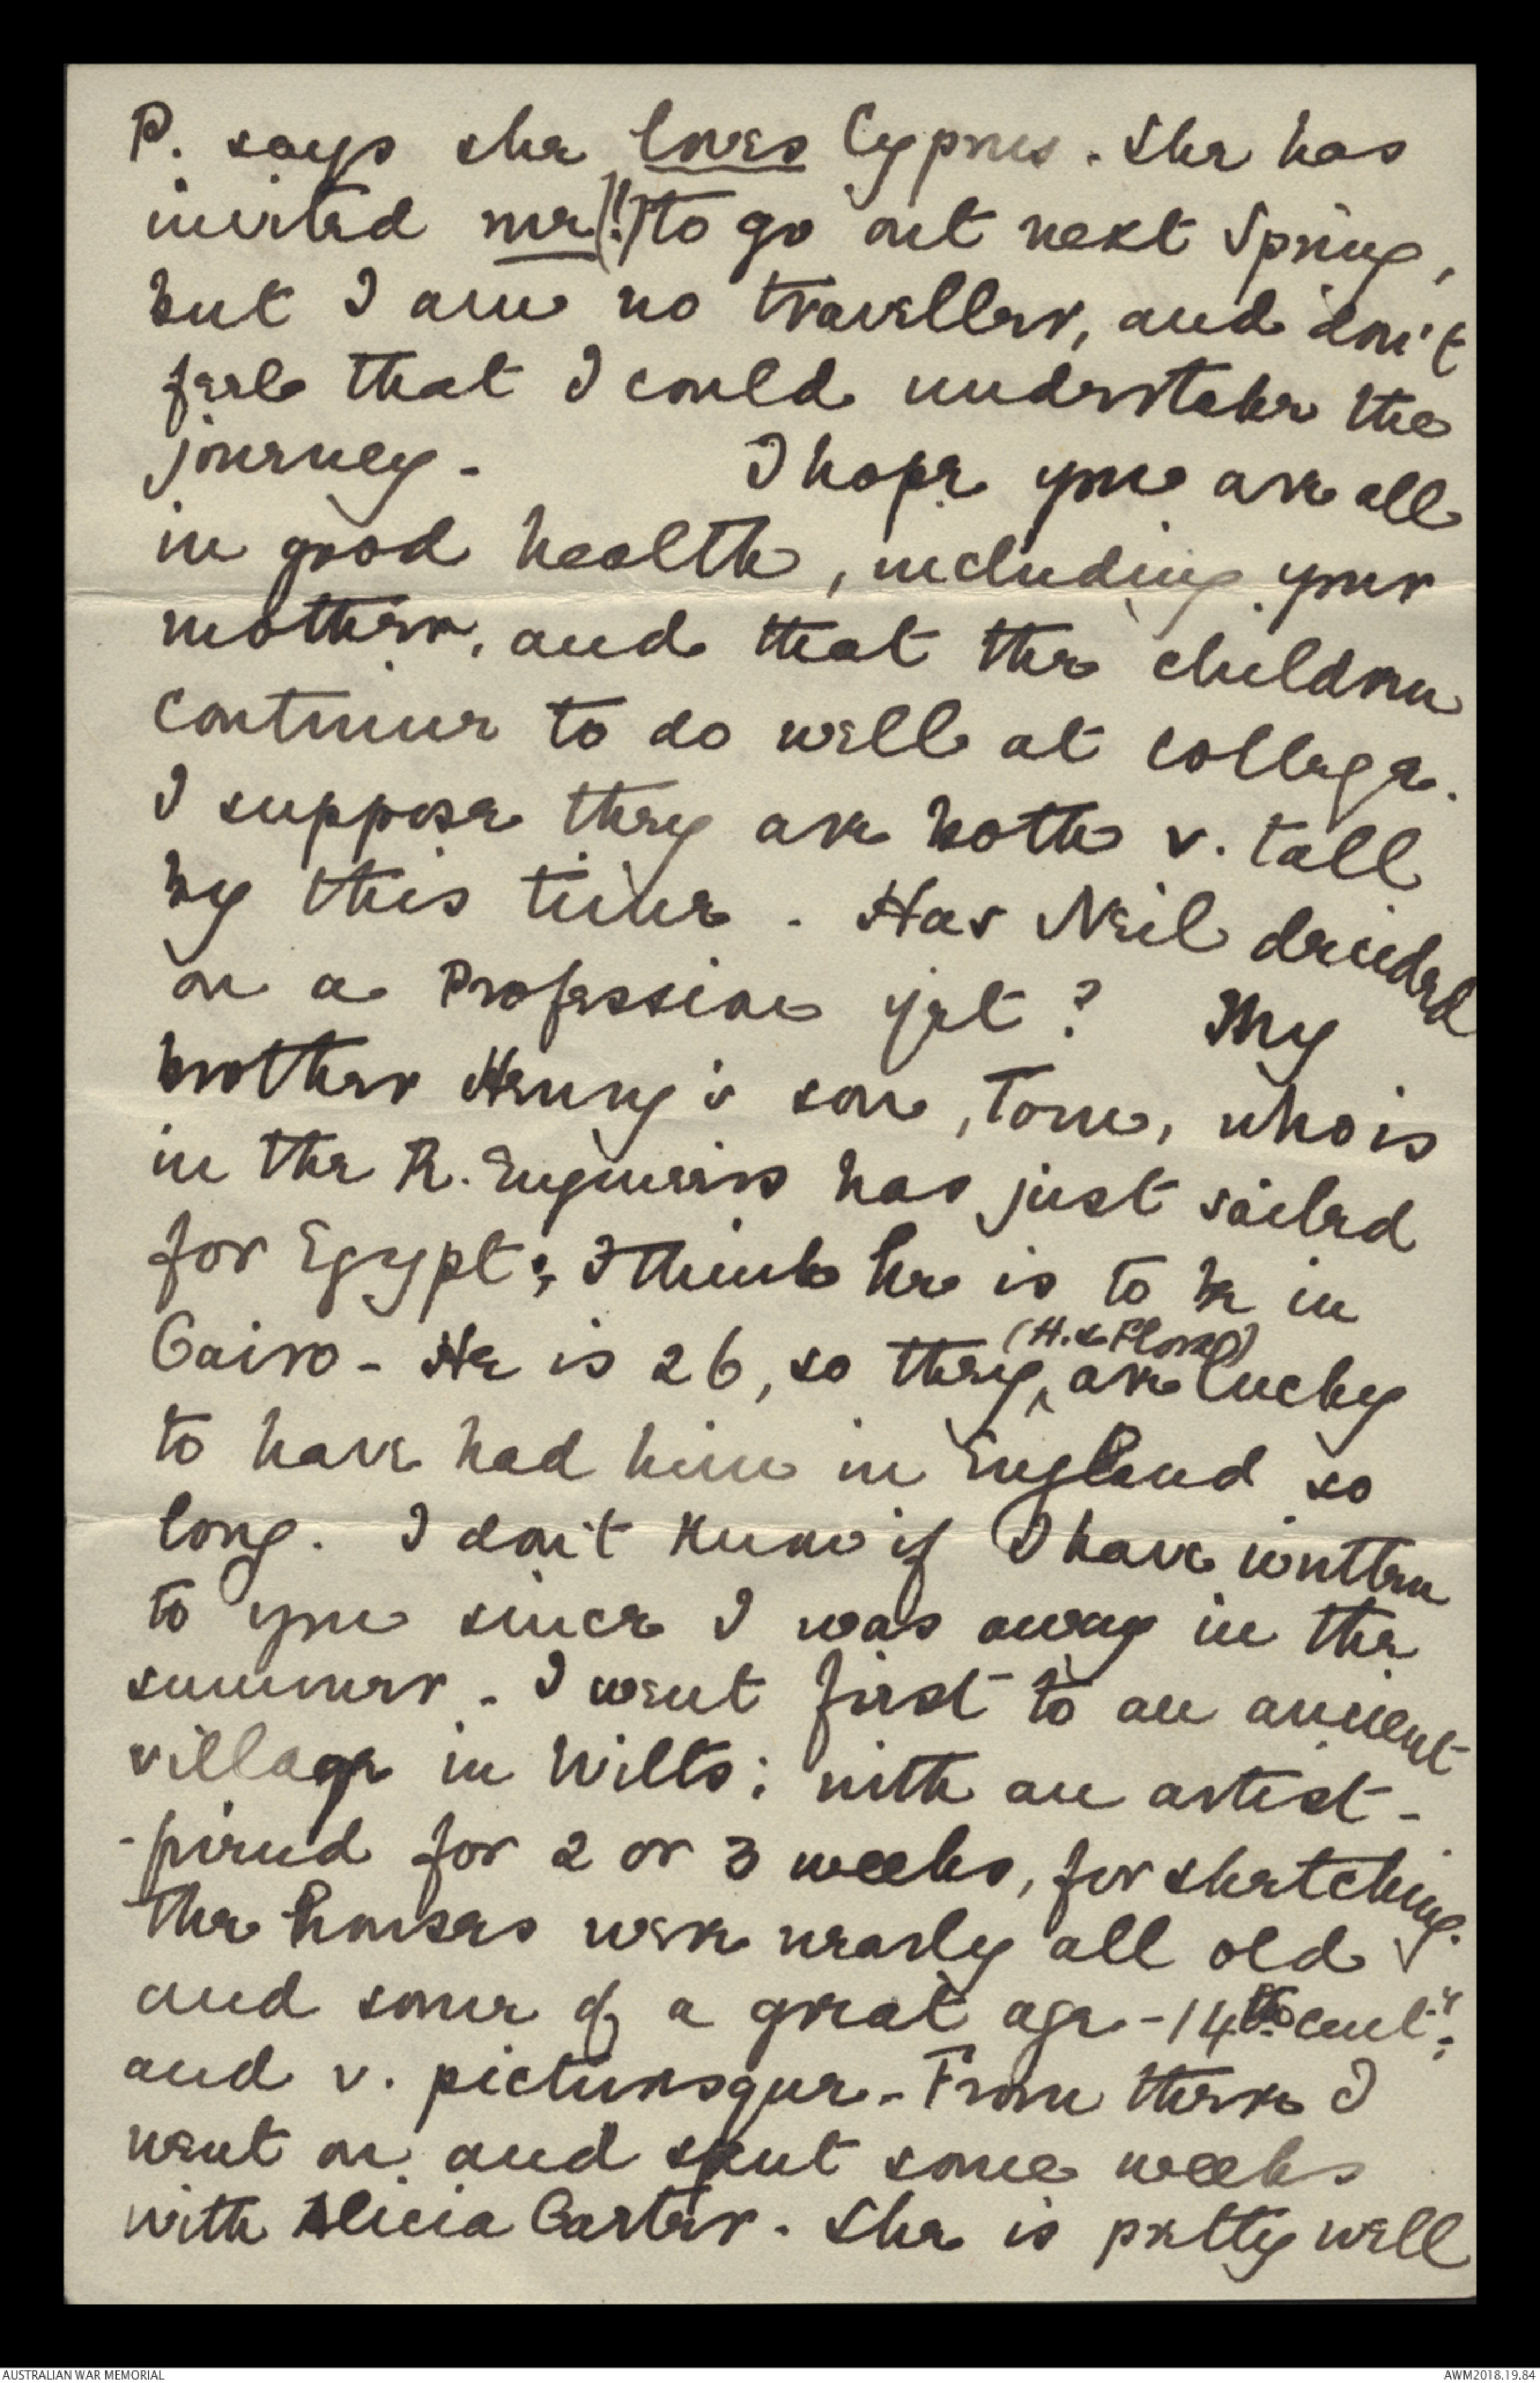 P. says she loves Cyprus. She has
invited me (!) to go out next Spring,
but I am no traveller, and don't
feel that I could undertake the
journey - I hope you are all
in good health, including your
mother, and that the children
continue to do well at college.
I suppose they are both v. tall
by this time. Has Neil decided
on a Profession yet? My
brother Henry's son, Tom, who is
in the R. Engineers has just sailed
for Egypt; I think he is to be in
Cairo - He is 26, so they (H. & Flora) are lucky
to have had him in England so
long. I don't know if I have written
to you since I was away in the
summer. I went first to an ancient
village in Wilts: with an artist-
-friend for 2 or 3 weeks, for sketching.
The houses were nearly all old
and some of a great age - 14th cent:y;
and v. picturesque - From there I
went on and spent some weeks
with Alicia Carter. She is pretty well
AUSTRALIAN WAR MEMORIAL
AWM2018.19.84